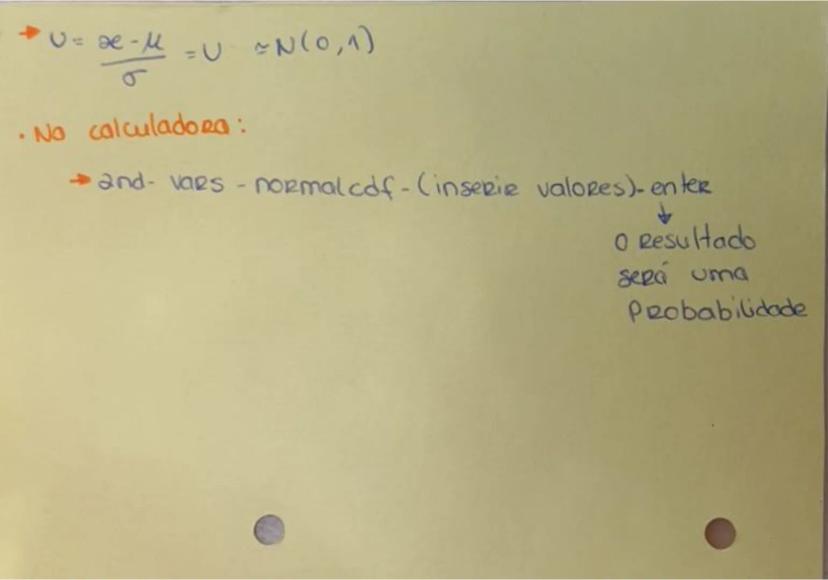 → U = x - μ / σ = U ≃ N(0,1)
• Na calculadora:
→ 2nd - vars - normalcdf - (inserir valores) - enter
↓
O Resultado
será uma
Probabilidade